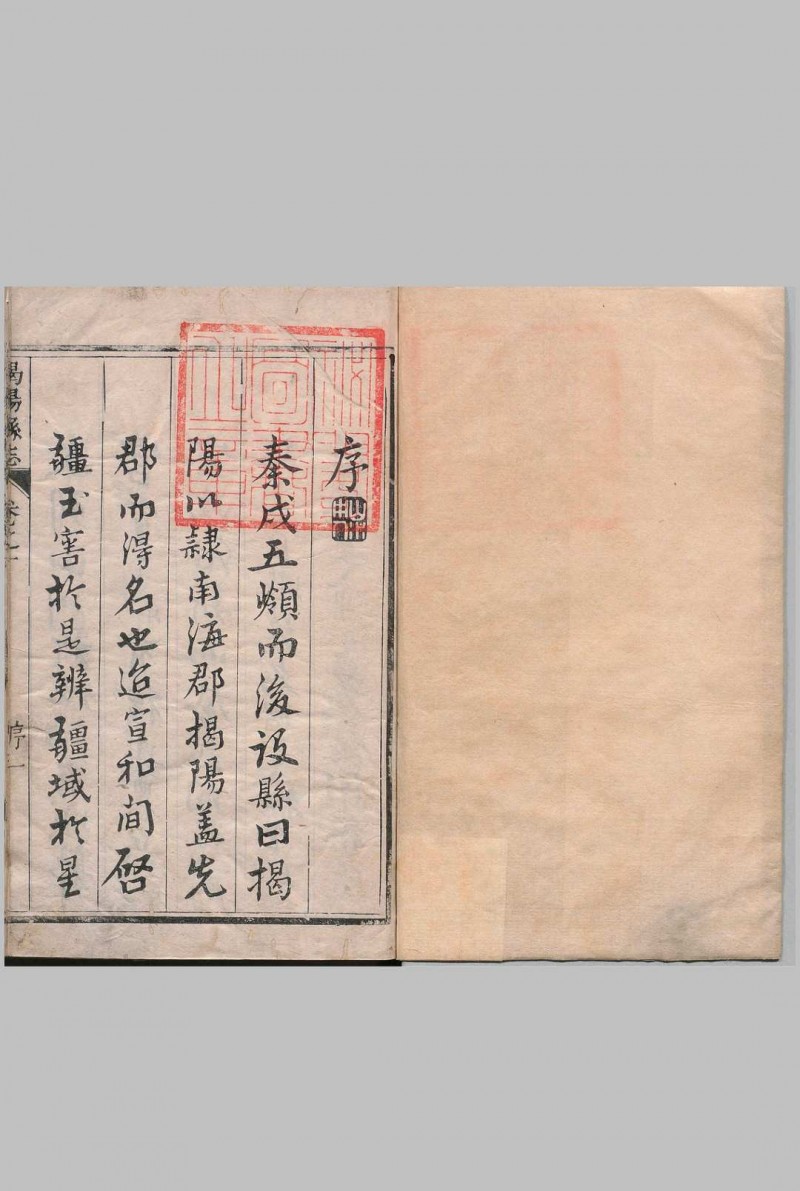 序
秦戍五嶺而後設縣曰揭
陽以隷南海郡揭陽盖先
郡而得名也迨宣和間啓
疆玉窖於是辨疆域於星
揭陽縣志
卷之一
序一